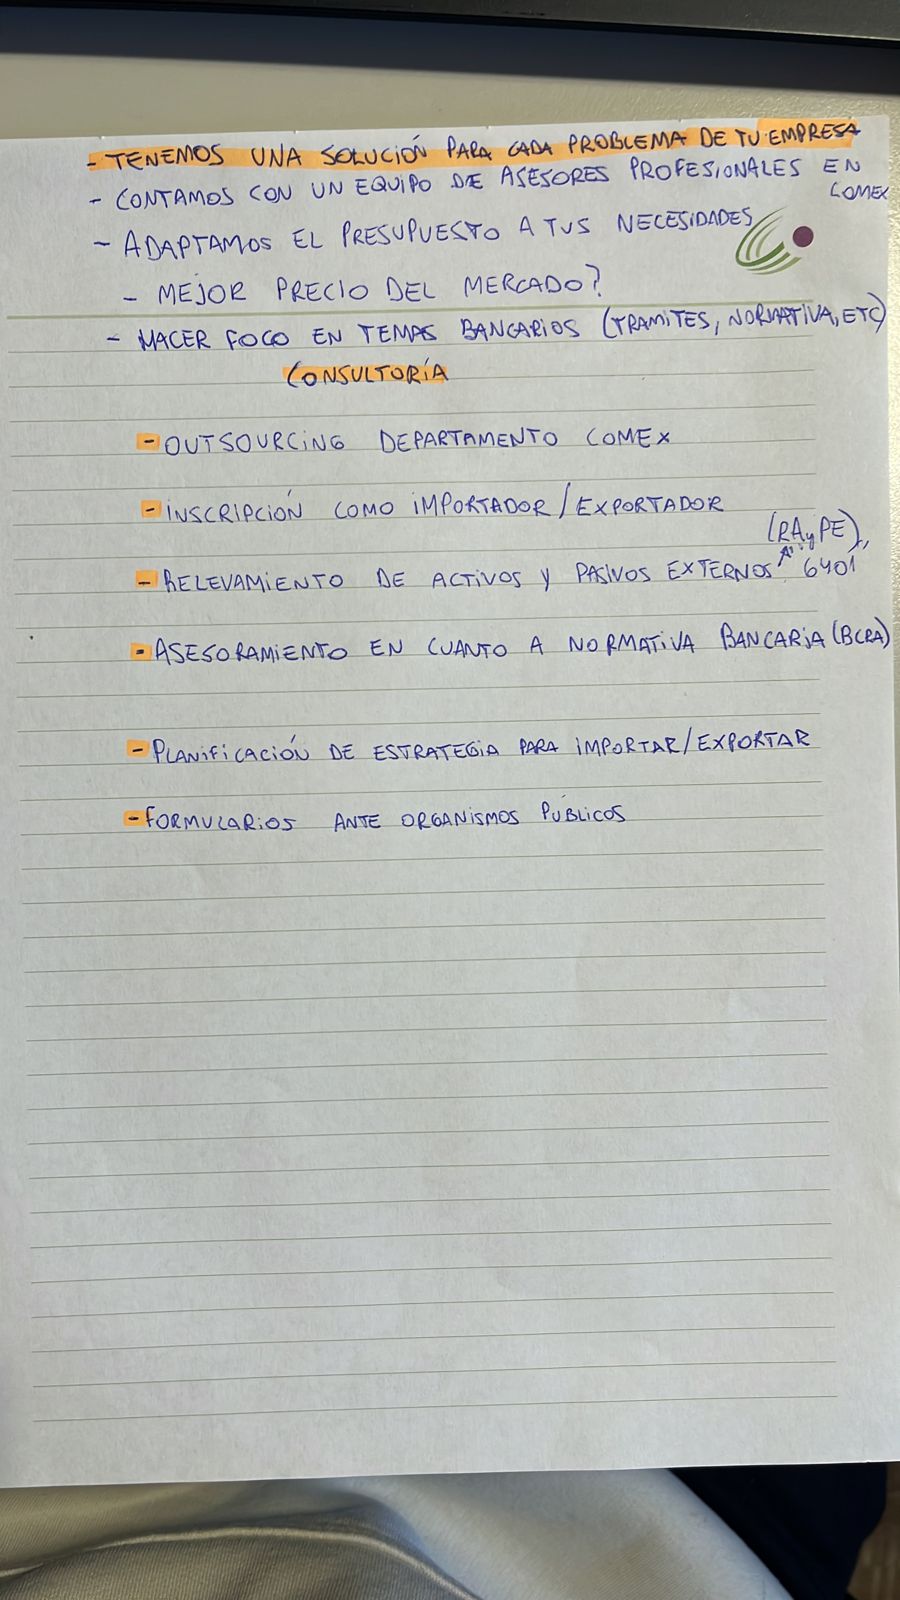 - TENEMOS UNA SOLUCIÓN PARA CADA PROBLEMA DE TU EMPRESA
- CONTAMOS CON UN EQUIPO DE ASESORES PROFESIONALES EN
COMEX
- ADAPTAMOS EL PRESUPUESTO A TUS NECESIDADES
- MEJOR PRECIO DEL MERCADO?
- HACER FOCO EN TEMAS BANCARIOS (TRAMITES, NORMATIVA, ETC)
CONSULTORÍA
- OUTSOURCING DEPARTAMENTO COMEX
- INSCRIPCIÓN COMO IMPORTADOR/EXPORTADOR
(RAyPE),
- RELEVAMIENTO DE ACTIVOS y PASIVOS EXTERNOS 6401
- ASESORAMIENTO EN CUANTO A NORMATIVA BANCARIA (BCRA)
- PLANIFICACIÓN DE ESTRATEGIA PARA IMPORTAR/EXPORTAR
- FORMULARIOS ANTE ORGANISMOS PÚBLICOS